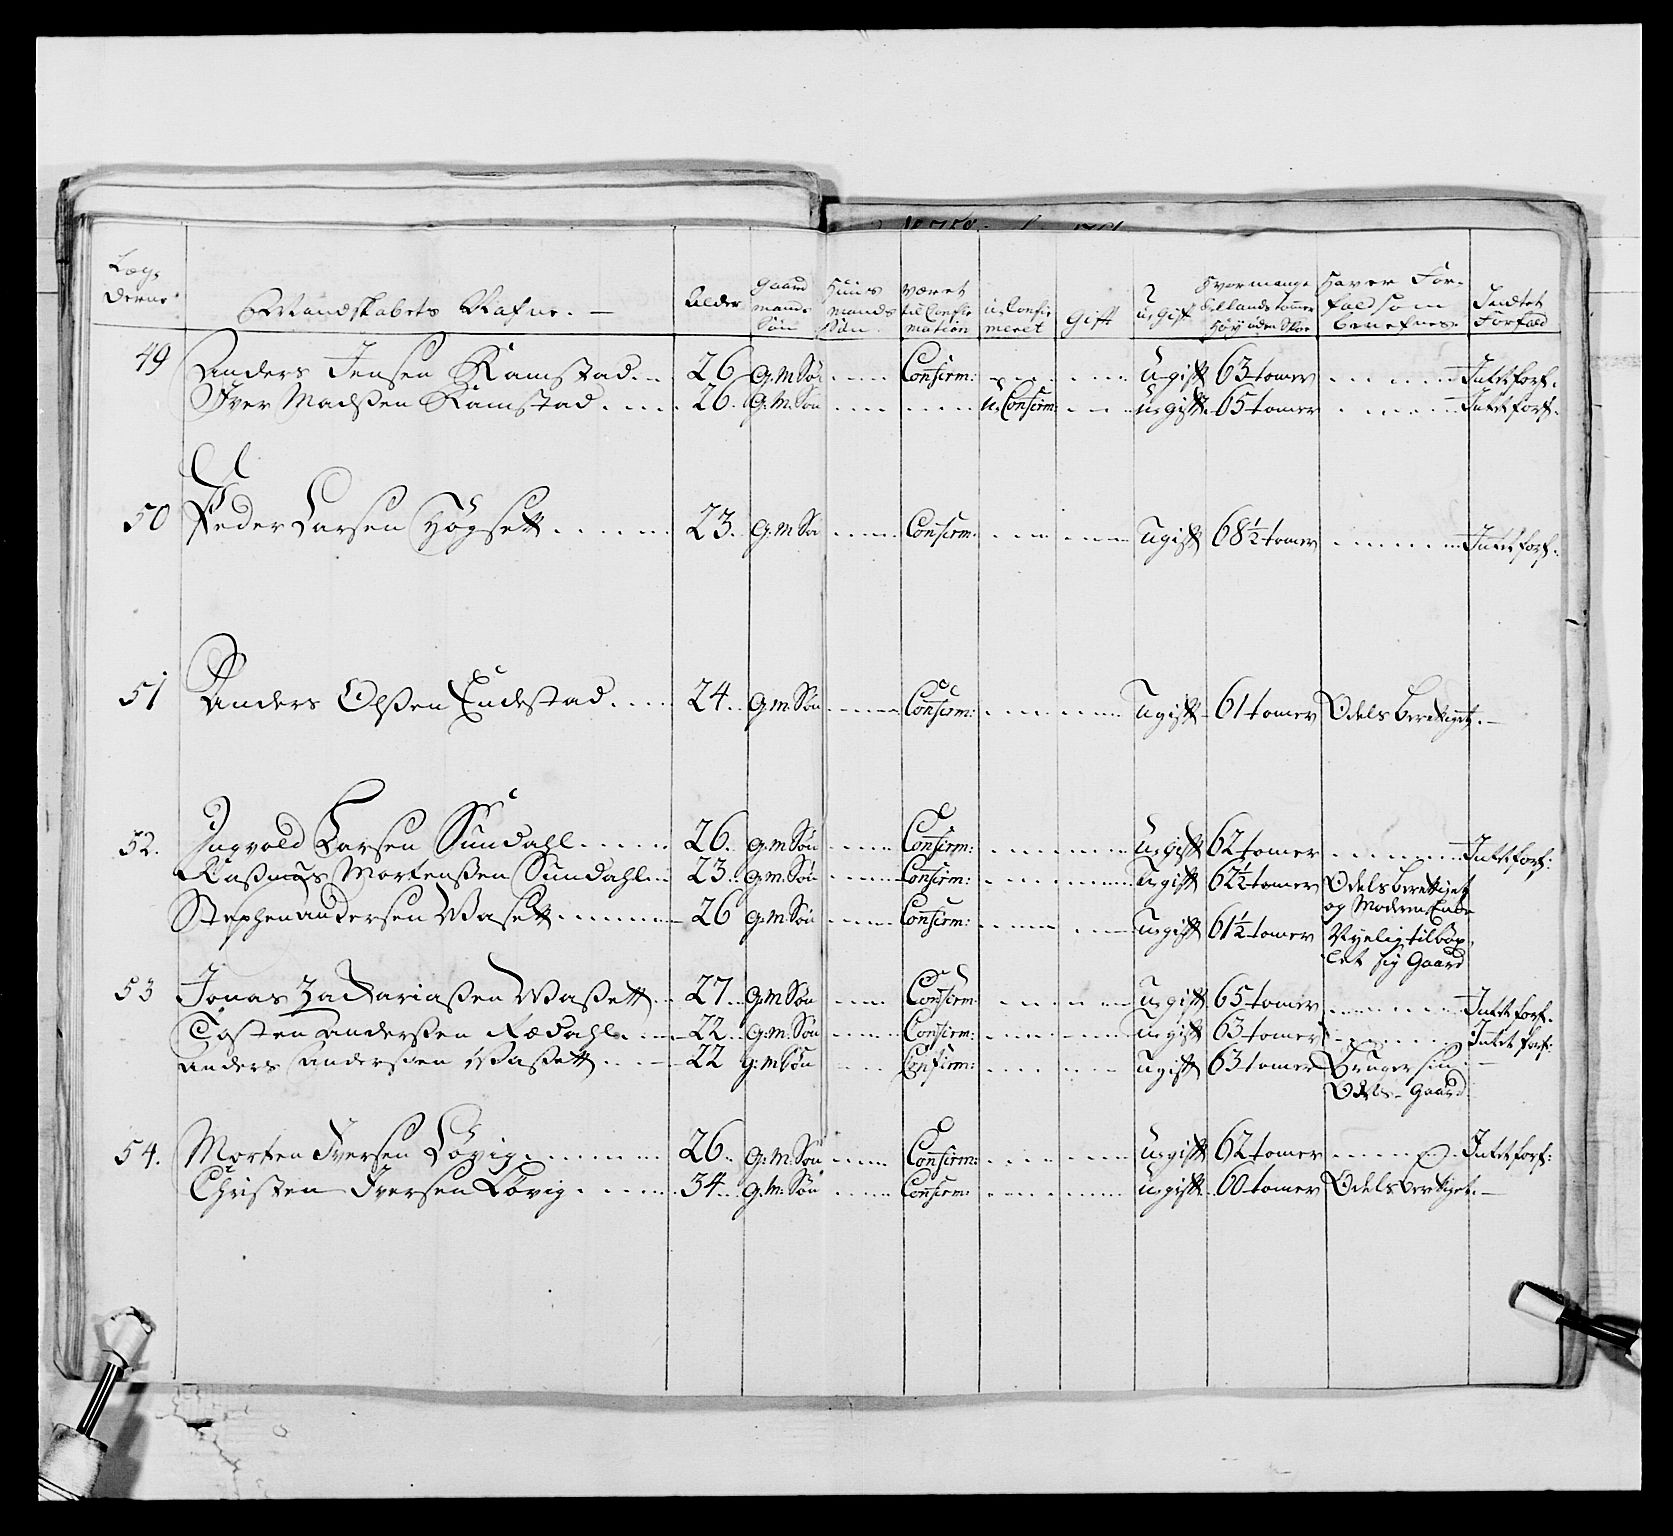 Læg,
derne
Mandskabets Nafne. —
Alder
Gaard
mands
Søn
Huus
mands
Søn.
været
til Confir
mation
u, Confir
meret
Gift
u, gift
Hvor mange
Sellands tomer
Høy uden Skoe
Haver For-
fal som
benefnes
Indtet
Forfald
49 Anders Jensen Ramstad... 26 G. M Søn ..... Confirm: ..... u, gift 63 tomer ..... Intet forf.
Iver Madsen Ramstad.... 26. G. M. Søn ..... u, Confirm ..... u, gift 65 tomer ..... Intet forf.
50 Peder Larsen Høgsett...... 23. G. M Sø ..... Confirm. ..... Ugift 68½ tomer ..... Intet forf.
51 Anders Olsen Endestad.... 24. G. M. Søn ..... Confirm: ..... Ugift 61 tomer Odels berettiget. —
52. Ingvold Larsen Sundahl...... 26. G. M Søn ..... Confirm: ..... u, gift 62 tomer ..... Intet forf:
Rasmus Mortensen Sundahl.. 23.. G. M. Søn ..... Confirm: ..... u, gift 62½ tomer Odels berettiget
og Moderen Enke
Stephen andersen Wasett....... 26 G. M: Søn ..... Confirm: ..... u, gift 61½ tomer Nyelig tilbøx,
let sig Gaard
53 Jonas Zackariasen Wasett.. 27.. G. M Søn ..... Confirm ..... u, gift 65 tomer ..... Intet forf.
Tosten Andersen Rødahl.... 22. G. M. Søn ..... Confirm: ..... u, gift 63 tomer ..... Intet forf:
Anders Andersen Wasett.... 22 G: M Søn ..... Confirm: ..... Ugift 63 tomer Bruger sin —
Odels- Gaard
54. Morten Iversen Løvig....... 26.. G. M. Søn ..... Confirm: ..... u, gift 62 tomer ..... Intet forf:
Christen Iversen Løvig...... 34.. G. M. Søn ..... Confirm: ..... u, gift 60 tomer Odels berettiget. —